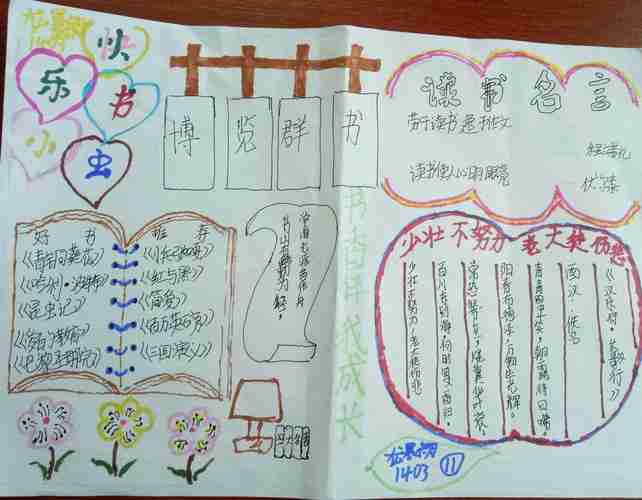 快乐
书
小
虫
博览群书
读书名言
劳于读书 逸于作文
程端礼
读书使人心明眼亮
伏尔泰
好书推荐
《青铜葵花》
《哈利·波特》
《昆虫记》
《巴黎圣母院》
《红与黑》
《简爱》
《百万英镑》
《三国演义》
书山有路勤为径，
书香伴我成长
少壮不努力 老大徒伤悲
《汉乐府·长歌行》
西汉·佚名
青青园中葵，朝露待日晞。
阳春布德泽，万物生光辉。
常恐秋节至，焜黄华叶衰。
百川东到海，何时复西归。
少壮不努力，老大徒伤悲
1403
11